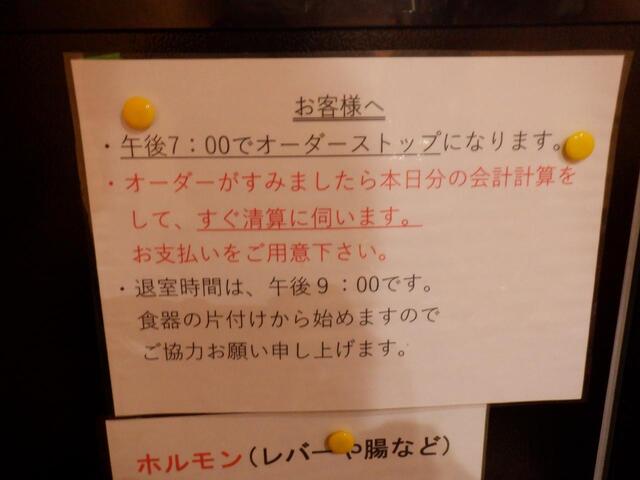 お客様へ
・午後7：00でオーダーストップになります。
・オーダーがすみましたら本日分の会計計算を
して、すぐ清算に伺います。
お支払いをご用意下さい。
・退室時間は、午後９：00です。
食器の片付けから始めますので
ご協力お願い申し上げます。
ホルモン(レバーや腸など)